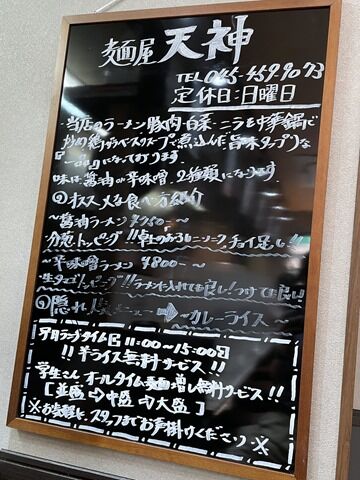 麺屋 天神
TEL 045-459-9073
定休日:日曜日
当店のラーメン豚肉・白菜・ニラを中華鍋で
炒め鶏ガラベースのスープで煮込んだ旨味タップリな
になっております。
味は、醤油 or 辛味噌、2種類になります。
オススメな食べ方紹介
～醤油ラーメン ¥750-～
分葱トッピング!!卓上のあるニンニクチョイ足し!!
～辛味噌ラーメン ¥800-～
生タマゴトッピング!!ラーメンに入れても良し!つけても良し!
隠れ メニュー ➡ ～カレーライス～
平日ランチタイム 11:00〜15:00
!!半ライス無料サービス!!
学生さん オールタイム麺増し無料サービス!!
[並盛⇨中盛⇨大盛]
※お気軽に、スタッフまでお声掛けください※